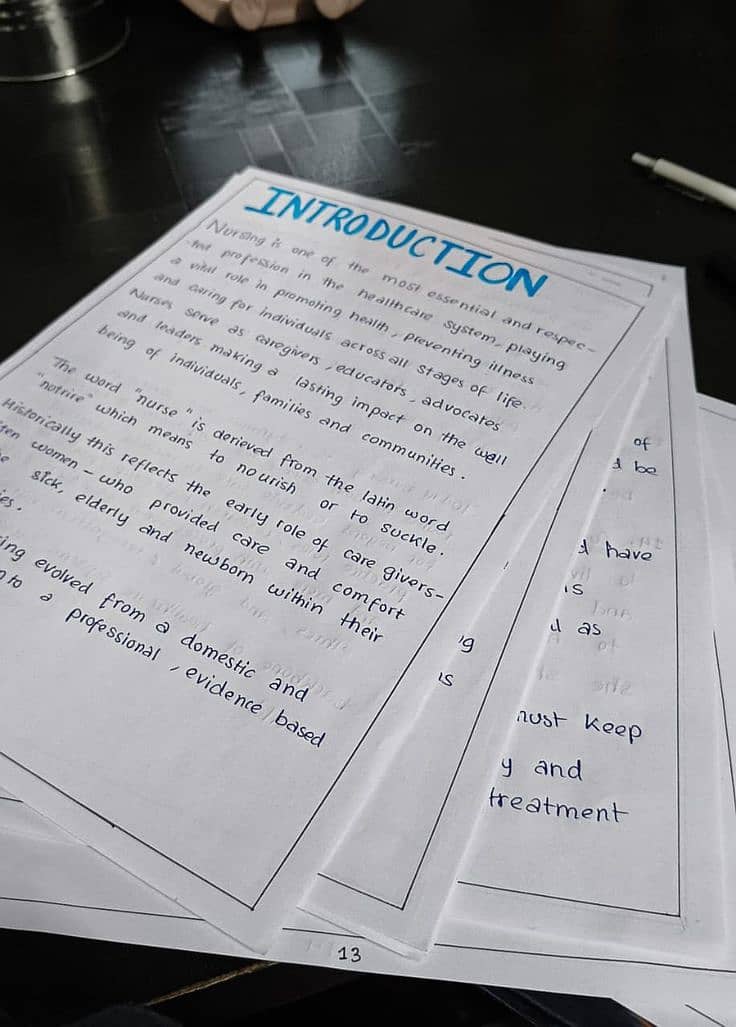 INTRODUCTION
Nursing is one of the most essential and respec-
-ted profession in the healthcare system, playing
a vital role in promoting health, preventing illness
and caring for individuals across all stages of life.
Nurses serve as caregivers, educators, advocates
and leaders making a lasting impact on the well
being of individuals, families and communities.
The word "nurse" is derieved from the latin word
"nutrire" which means to nourish or to suckle.
Historically this reflects the early role of care givers-
women - who provided care and comfort
sick, elderly and newborn within their
evolved from a domestic and
a professional, evidence based
of
be
have
is
as
must keep
and
treatment
is
13